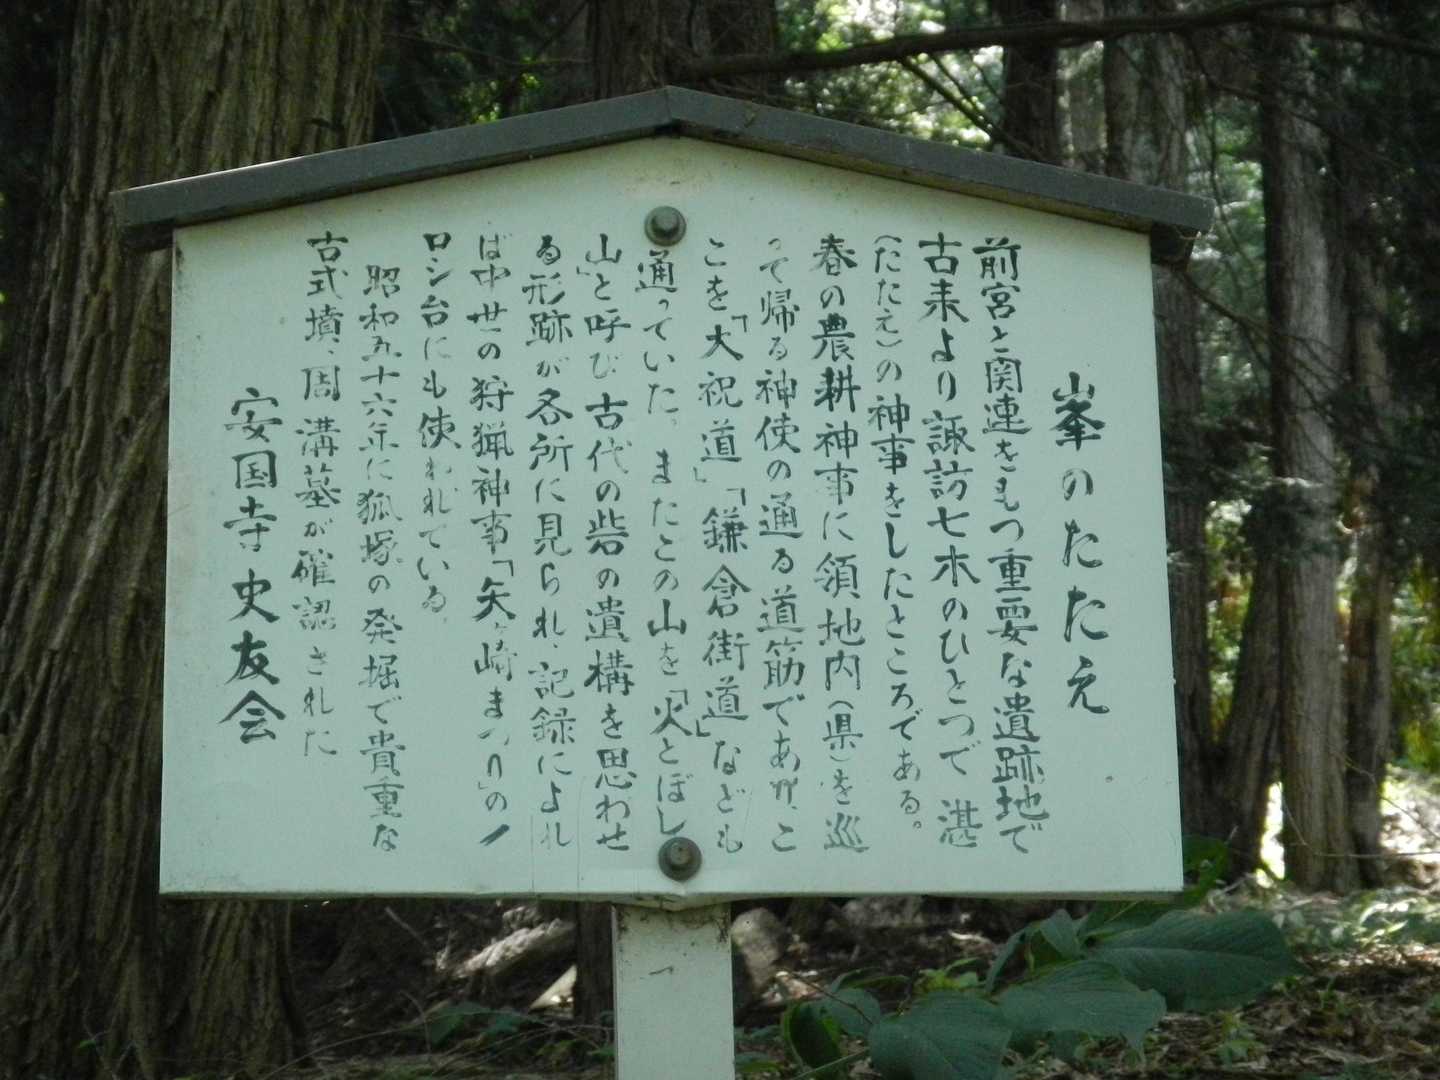 峯のたたえ
前宮と関連をもつ重要な遺跡地で
古来より諏訪七木のひとつで湛
(たたえ)の神事をしたところである。
春の農耕神事に領地内(県)を巡
って帰る神使の通る道筋であり、こ
こを「大祝道」「鎌倉街道」なども
通っていた。またこの山を「火とぼし
山」と呼び古代の砦の遺構を思わせ
る形跡が各所に見られ、記録によれ
ば中世の狩猟神事「矢ヶ崎まつり」の
ロシ台にも使われている。
昭和五十六年に狐塚の発掘で貴重な
古式墳、周溝墓が確認された
安国寺史友会